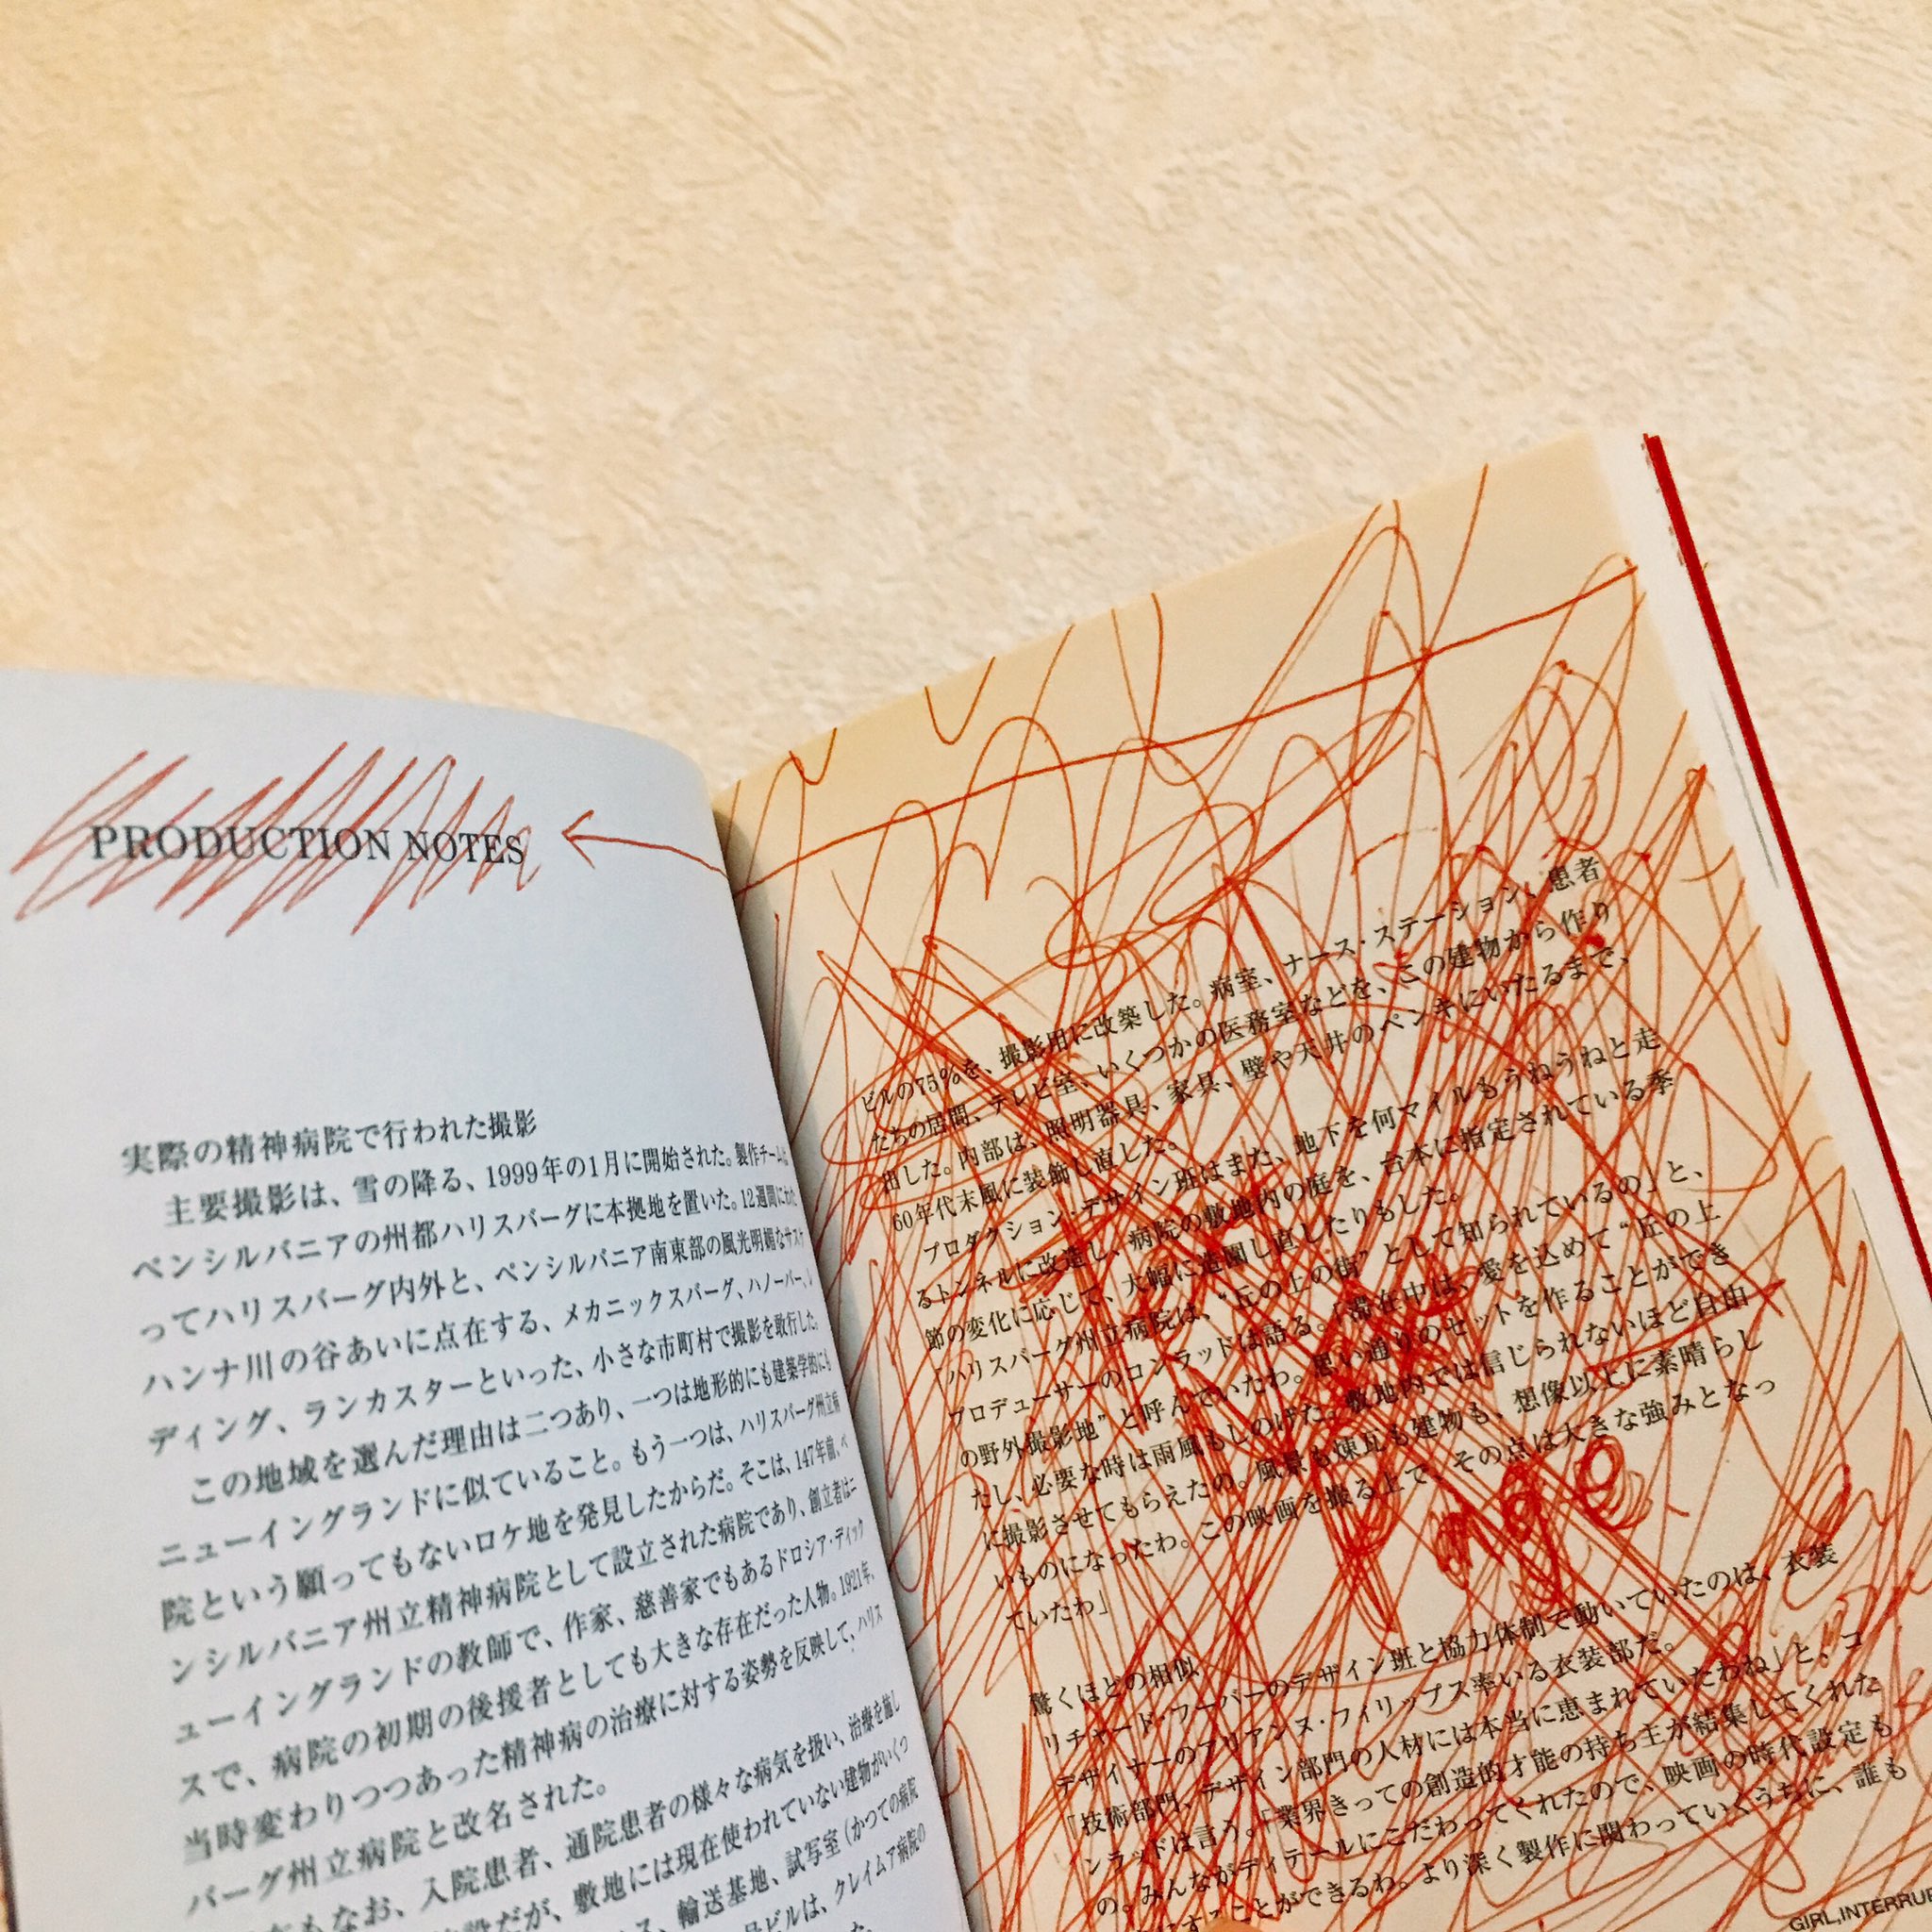 PRODUCTION NOTES
実際の精神病院で行われた撮影
主要撮影は、雪の降る、1999年の1月に開始された。製作チームは
ペンシルバニアの州都ハリスバーグに本拠地を置いた。12週間にわた
ってハリスバーグ内外と、ペンシルバニア南東部の風光明媚なサスケ
ハンナ川の谷あいに点在する、メカニックスバーグ、ハノーバー、
ディング、ランカスターといった、小さな市町村で撮影を敢行した。
この地域を選んだ理由は二つあり、一つは地形的にも建築学的にも
ニューイングランドに似ていること。もう一つは、ハリスバーグ州立病
院という願ってもないロケ地を発見したからだ。そこは、147年前、ペ
ンシルバニア州立精神病院として設立された病院であり、創立者はニ
ューイングランドの教師で、作家、慈善家でもあるドロシア・ディック
スで、病院の初期の後援者としても大きな存在だった人物。1921年、
当時変わりつつあった精神病の治療に対する姿勢を反映して、ハリス
バーグ州立病院と改名された。
もなお、入院患者、通院患者の様々な病気を扱い、治療を施し
設だが、敷地には現在使われていない建物がいくつ
輸送基地、試写室（かつての病院
ビルは、クレイムア病院の
ビルの75%を、撮影用に改築した。病室、ナース・ステーション、患者
たちの居間、テレビ室、いくつかの医務室などを、この建物から作り
出した。内部は、照明器具、家具、壁や天井のペンキにいたるまで、
60年代末風に装飾し直した。
プロダクション・デザイン班はまた、地下を何マイルもうねうねと走
るトンネルに改造し、病院の敷地内の庭を、台本に指定されている季
節の変化に応じて、大幅に造園し直したりもした。
「ハリスバーグ州立病院は、“丘の上の街”として知られているの」と、
プロデューサーのコンラッドは語る。「滞在中は、愛を込めて“丘の上
の野外撮影地”と呼んでいたわ。思い通りのセットを作ることができ
たし、必要な時は雨風もしのげた。敷地内では信じられないほど自由
に撮影させてもらえたの。風景も煉瓦も建物も、想像以上に素晴らし
いものになったわ。この映画を撮る上で、その点は大きな強みとなっ
ていたわ」
驚くほどの相似
リチャード・フーバーのデザイン班と協力体制で動いていたのは、衣装
デザイナーのアリアンヌ・フィリップス率いる衣装部だ。
「技術部門、デザイン部門の人材には本当に恵まれていたわね」と、コ
ンラッドは言う。「業界きっての創造的才能の持ち主が結集してくれた
の。みんながディテールにこだわってくれたので、映画の時代設定も
することができるわ。より深く製作に関わっていくうちに、誰も